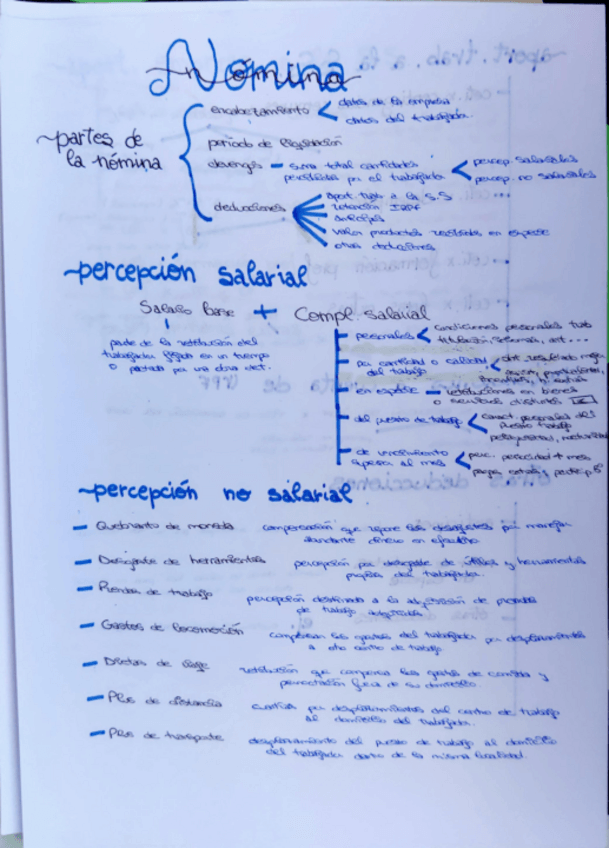 Nómina
nómina
~partes de
la nómina
encabezamiento
datos de la empresa
datos del trabajador
periodo de liquidación
devengos — suma total cantidades
percibidas por el trabajador
percep. salariales
percep. no salariales
deducciones
aport. trab. a la S.S
retención IRPF
anticipos
valor productos recibidos en especie
otras deducciones
~percepción salarial
Salario Base + Compl. salarial
parte de la retribución del
trabajador fijada en un tiempo
o pactada por una obra det.
personales
condiciones personales trab
titulación, idiomas, ant...
por cantidad o calidad
del trabajo
en especie — retribuciones en bienes
o distintos
del puesto de trabajo
caract. personales del
puesto trabajo
peligrosidad, nocturnidad
de vencimiento
superior al mes
perc. periocidad + mes
pagas extras, particip. Bº
~percepción no salarial
— Quebranto de moneda
compensación que repone los desajustes por manejar
durante dinero en efectivo.
— Desgaste de herramientas
percepción por desgaste de útiles y herramientas
propias del trabajador.
— Prendas de trabajo
percepción destinada a la adquisición de prendas
de trabajo adquiridas.
— Gastos de locomoción
compensan los gastos del trabajador por desplazamientos
a otro centro de trabajo.
— Dietas de viaje
retribución que compensa los gastos de comida y
pernoctación fuera de su domicilio.
— Plus de distancia
cuantía por desplazamientos del centro de trabajo
al domicilio del trabajador.
— Plus de transporte
desplazamiento del puesto de trabajo al domicilio
del trabajador dentro de la misma localidad.